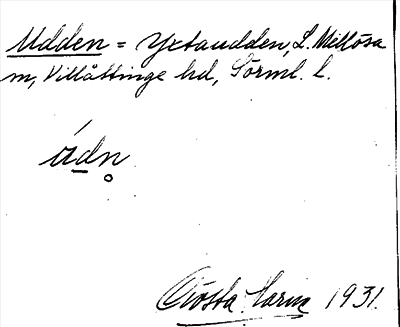 Udden = Yxtaudden, L. Mellösa
m, Villåttinge hd, Sörml. l.
údn̥
Gösta 1931.